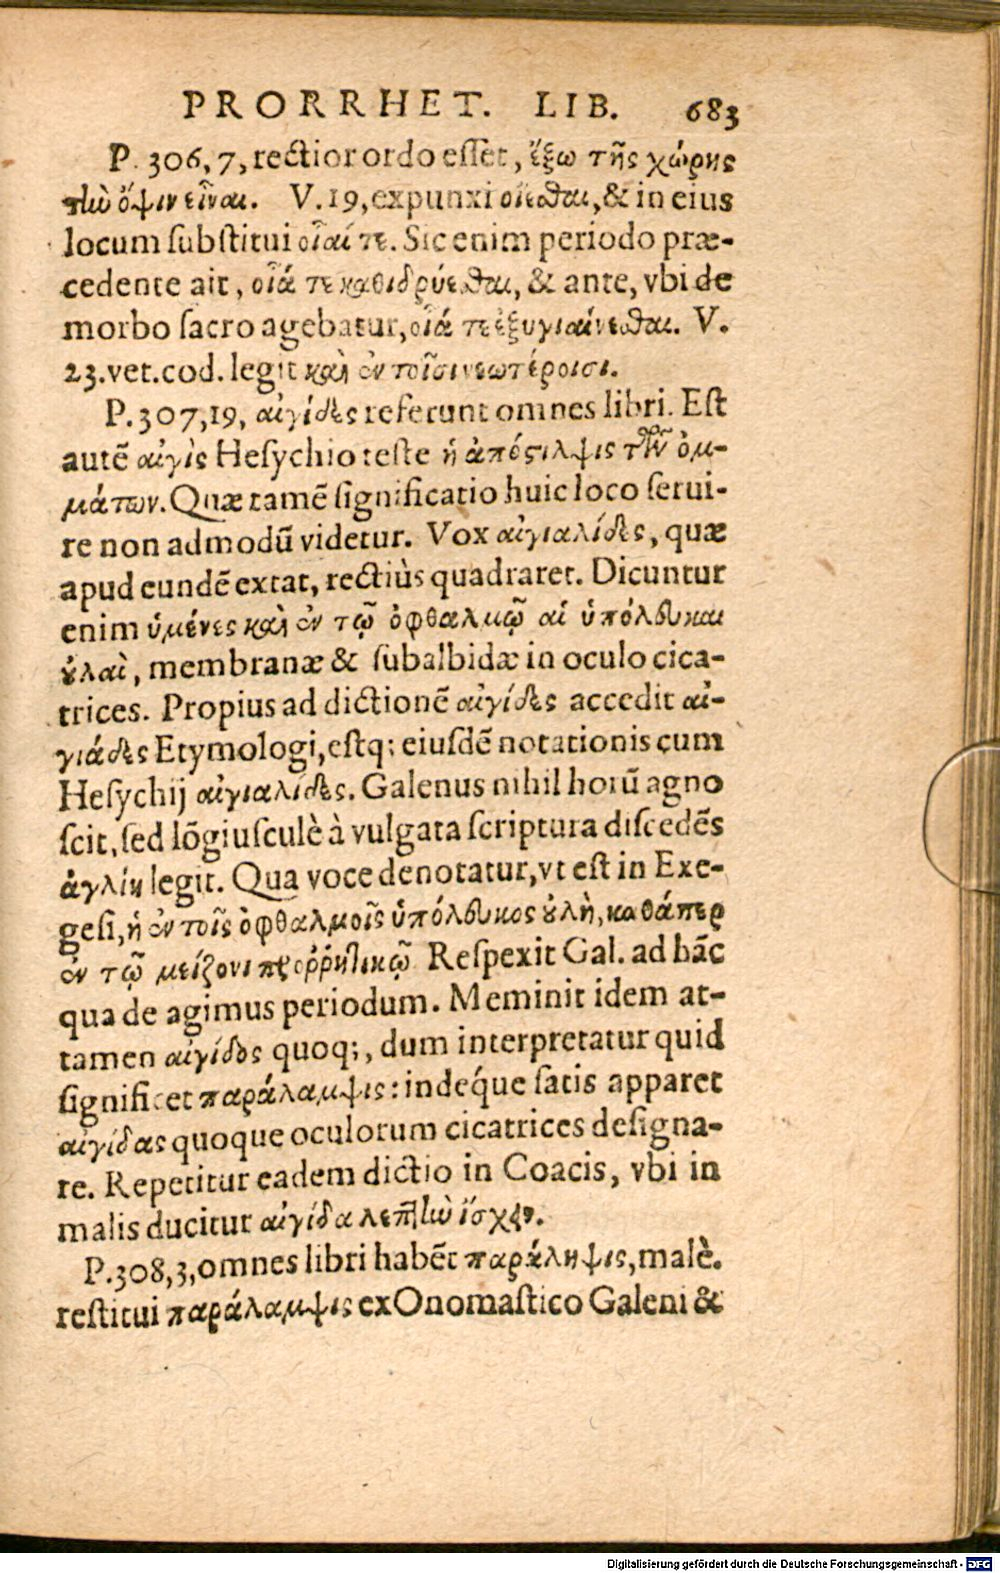 PRORRHET. LIB. 683
P. 306, 7, rectior ordo esset, ἔξω τῆς χώρης
τὴν ὄψιν εἶναι. V. 19, expunxi οἴεσθαι, & in eius
locum substitui οἷαί τε. Sic enim periodo præ-
cedente ait, οἷά τε καθιδρύεσθαι, & ante, vbi de
morbo sacro agebatur, οἷά τε ἐξυγιαίνεσθαι. V.
23. vet. cod. legit καὶ ἐν τοῖσι νεωτέροισι.
P. 307, 19, αἰγίδες referunt omnes libri. Est
autē αἰγὶς Hesychio teste ἡ ἀπόστιλψις τῶν ὀμ-
μάτων. Quæ tamē significatio huic loco serui-
re non admodū videtur. Vox αἰγιαλίδες, quæ
apud eundē extat, rectiùs quadraret. Dicuntur
enim ὑμένες καὶ ἐν τῷ ὀφθαλμῷ αἱ ὑπόλευκαι
οὐλαὶ, membranæ & subalbidæ in oculo cica-
trices. Propius ad dictionē αἰγίδες accedit αἰ-
γιάδες Etymologi, estq; eiusdē notationis cum
Hesychij αἰγιαλίδες. Galenus nihil horū agno
scit, sed lōgiusculè à vulgata scriptura discedēs
ἀγλίη legit. Qua voce denotatur, vt est in Exe-
gesi, ἡ ἐν τοῖς ὀφθαλμοῖς ὑπόλευκος οὐλὴ, καθάπερ
ἐν τῷ μείζονι προῤῥητικῷ. Respexit Gal. ad hāc
qua de agimus periodum. Meminit idem at-
tamen αἰγίδος quoq;, dum interpretatur quid
significet παράλαμψις: indéque satis apparet
αἰγίδας quoque oculorum cicatrices designa-
re. Repetitur eadem dictio in Coacis, vbi in
malis ducitur αἰγίδα λεπτὴν ἴσχειν.
P. 308, 3, omnes libri habēt παράληψις, malè.
restitui παράλαμψις ex Onomastico Galeni &
Digitalisierung gefördert durch die Deutsche Forschungsgemeinschaft - DFG